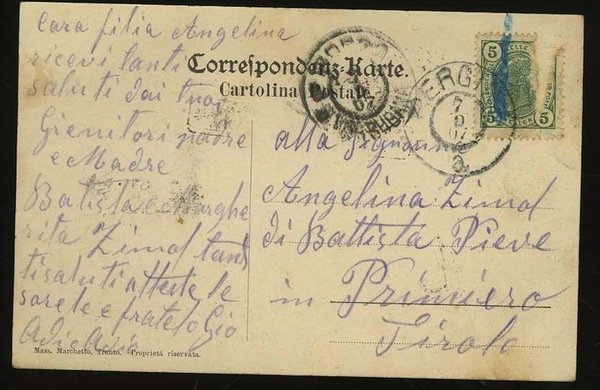 Cara filia Angelina
ricevi tanti
saluti dai tuoi
Gienitori padre
e Madre
Batista e Marghe
rita Zimol tanti
saluti a tte le
sorele e fratelo Gio
Adio Adio
Correspondenz-Karte.
Cartolina Postale.
PERGI
7
07
a
5
5 5
alla Signorina
Angelina Zimol
di Battista Pieve
in Primiero
Tirolo
Mass. Marchetto, Trento. Proprietà riservata.